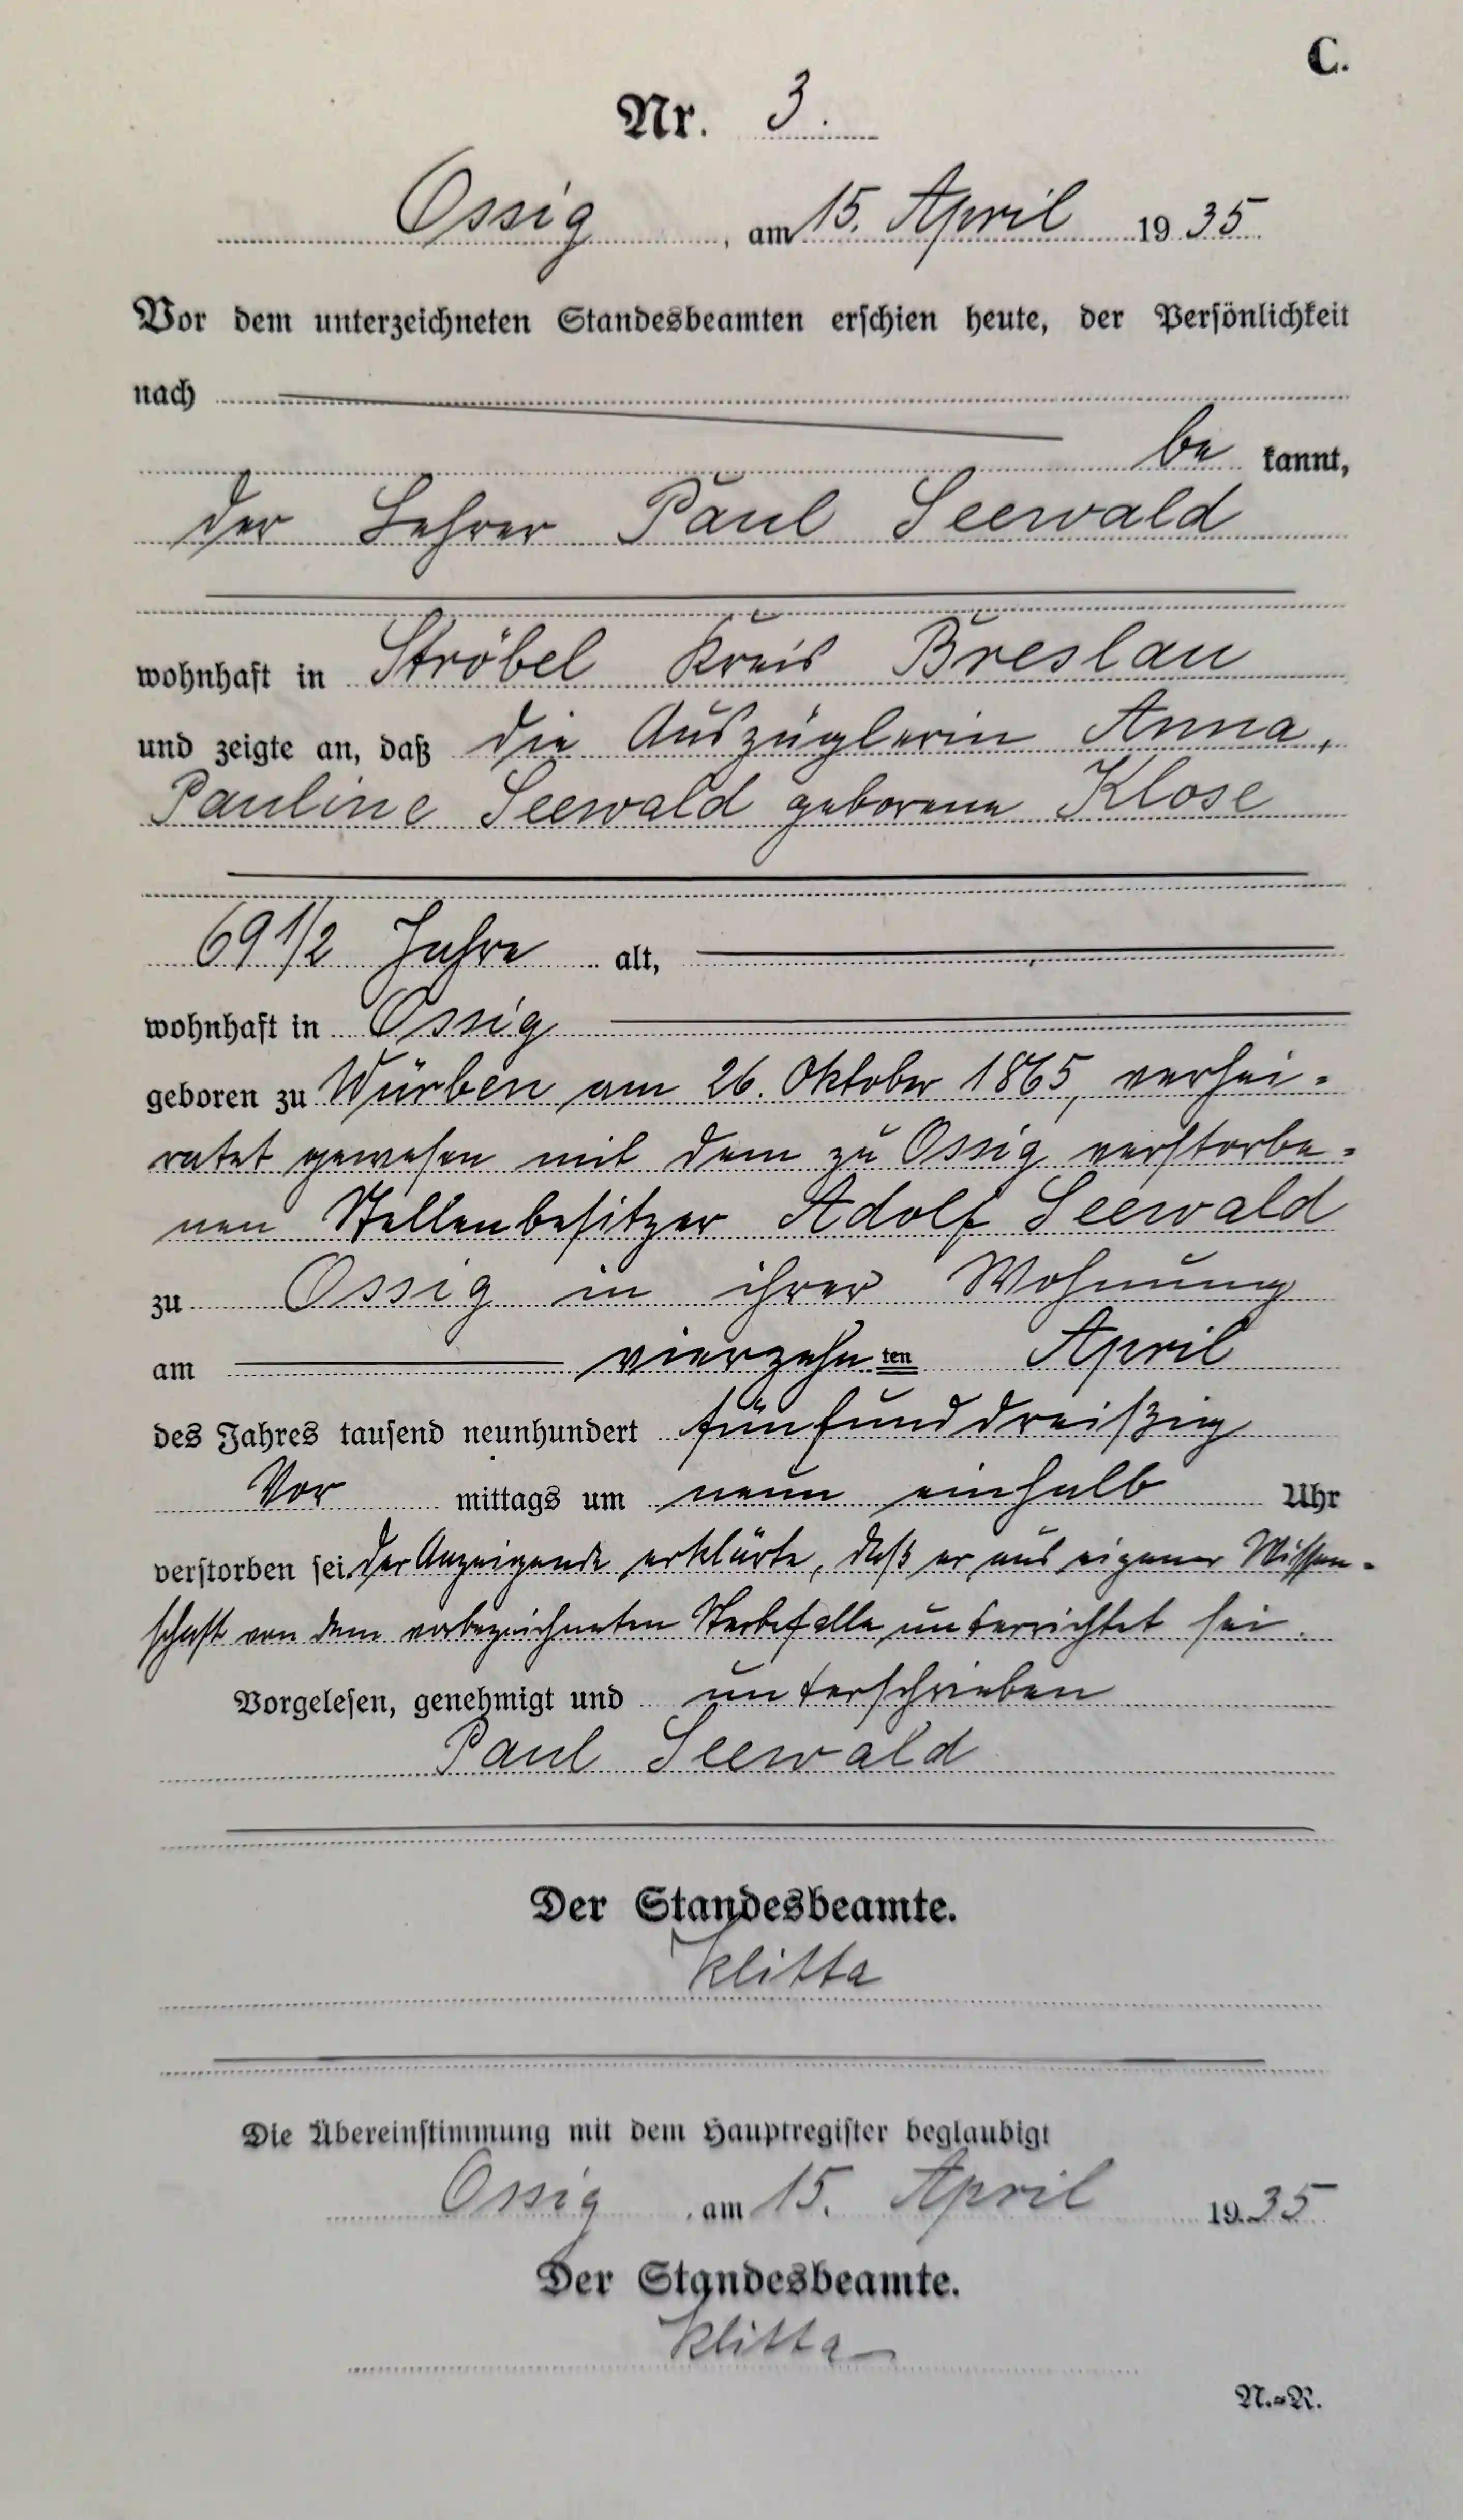 C.
Nr. 3.
Ossig, am 15. April 1935
Vor dem unterzeichneten Standesbeamten erschien heute, der Persönlichkeit
nach
be kannt,
der Lehrer Paul Seewald
wohnhaft in Ströbel Kreis Breslau
und zeigte an, daß die Auszüglerin Anna,
Pauline Seewald geborene Klose
69 1/2 Jahre alt,
wohnhaft in Ossig
geboren zu Würben am 26. Oktober 1865, verhei-
ratet gewesen mit dem zu Ossig verstorbe-
nen Stellenbesitzer Adolf Seewald
zu Ossig in ihrer Wohnung
am vierzehnten April
des Jahres tausend neunhundert fünfunddreißig
Vor mittags um neun einhalb Uhr
verstorben sei. Der Anzeigende erklärte, daß er aus eigener Wissen-
schaft von dem vorbezeichneten Sterbefalle unterrichtet sei.
Vorgelesen, genehmigt und unterschrieben
Paul Seewald
Der Standesbeamte.
Klitta
Die Übereinstimmung mit dem Hauptregister beglaubigt
Ossig, am 15. April 1935
Der Standesbeamte.
Klitta
N.-R.